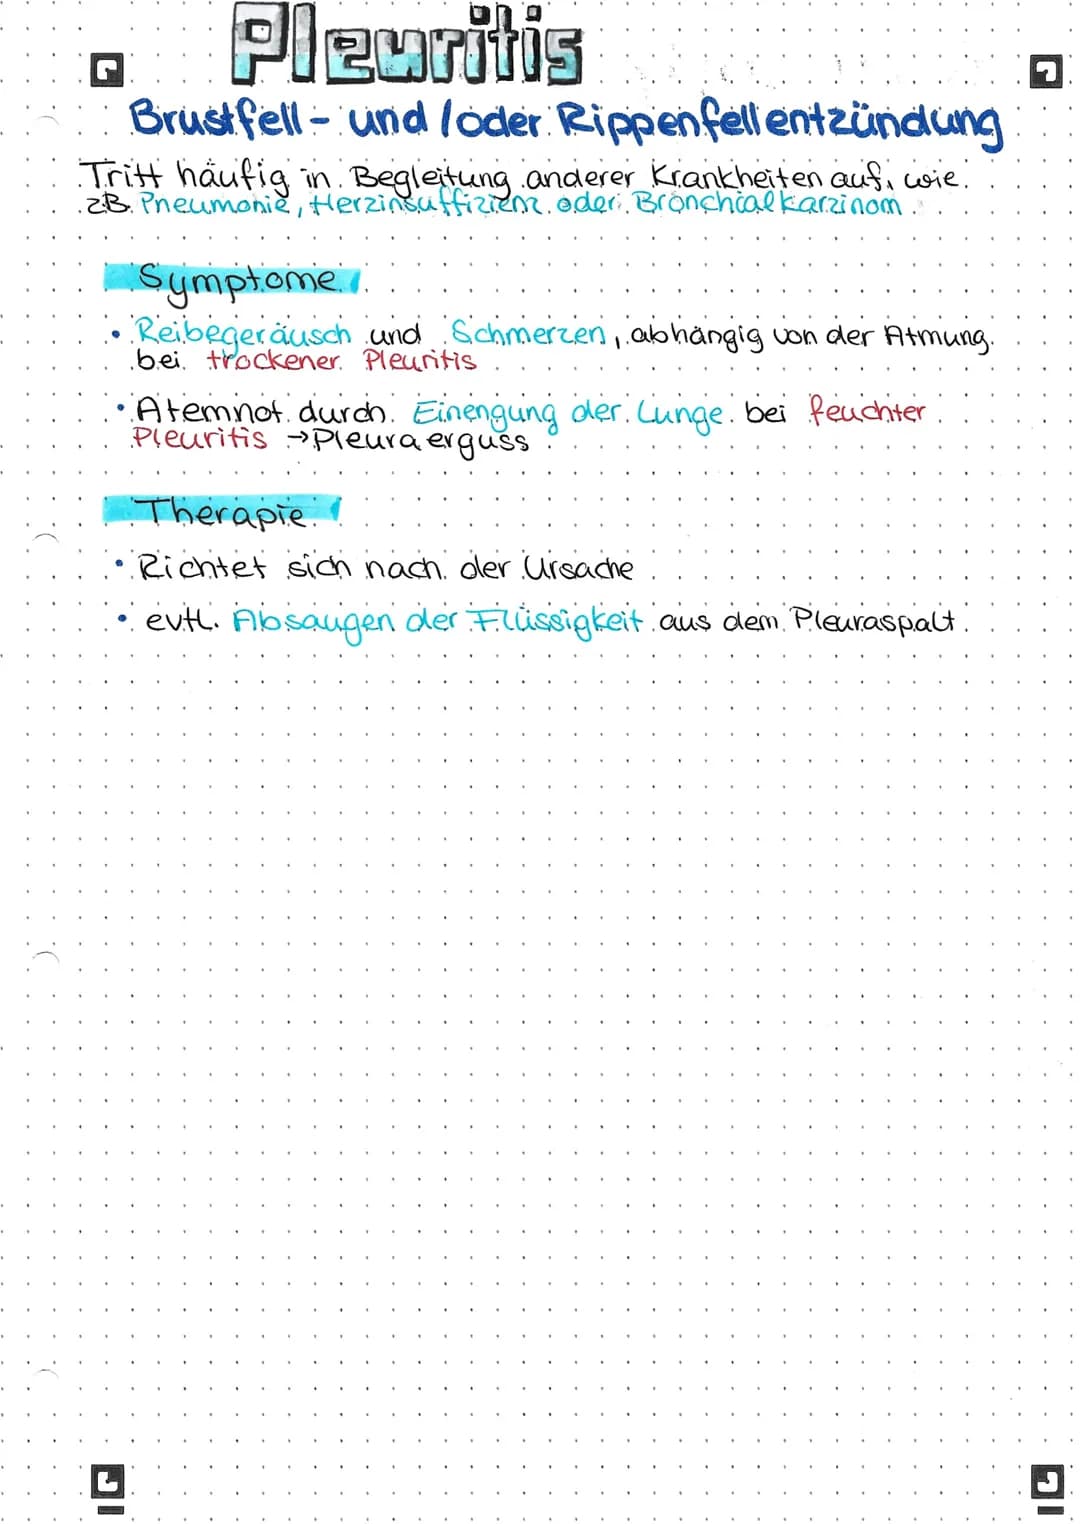 Pleuritis
Brustfell- und /oder Rippenfellentzündung
Tritt häufig in Begleitung anderer Krankheiten auf, wie
z.B. Pneumonie, Herzinsuffizienz oder Bronchialkarzinom.
Symptome
• Reibegeräusch und Schmerzen, abhängig von der Atmung
bei trockener Pleuritis
• Atemnot durch Einengung der Lunge bei feuchter
Pleuritis → Pleuraerguss
Therapie
• Richtet sich nach der Ursache
• evtl. Absaugen der Flüssigkeit aus dem Pleuraspalt.